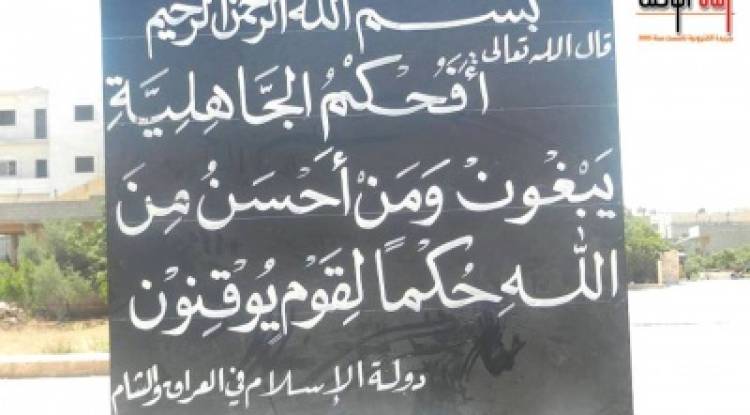 بسم الله الرحمن الرحيم
قال الله تعالى
أَفَحُكْمُ الجَاهِلِيَّةِ
يَبْغُونْ وَمَنْ أَحْسَنُ مِنَ
اللهِ حُكْمًا لِقَوْمٍ يُوْقِنِوْنْ
دولة الإسلام في العراق والشام